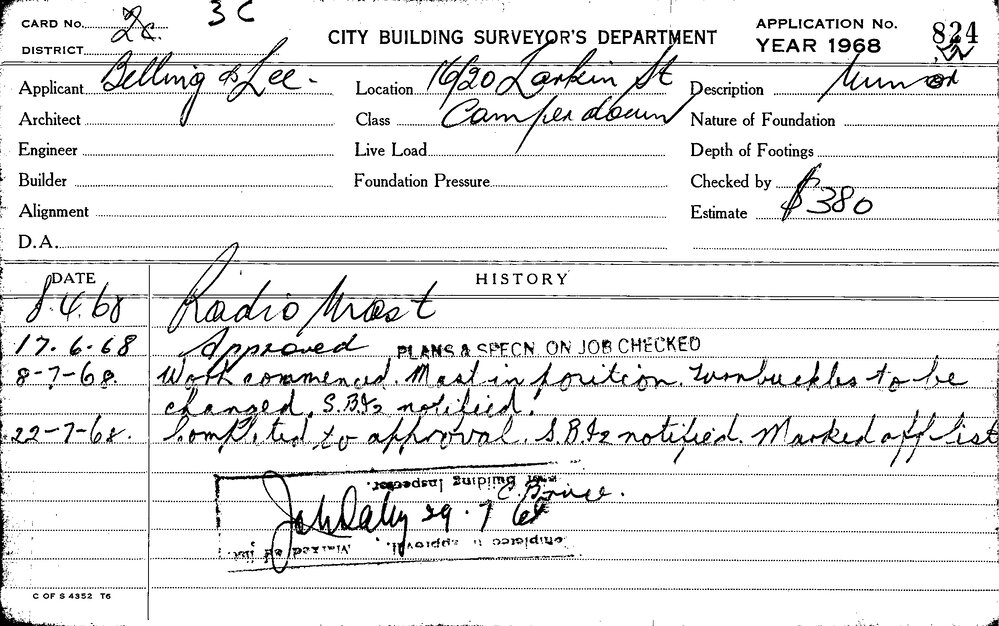 CARD No. 2c. 3C
DISTRICT
CITY BUILDING SURVEYOR'S DEPARTMENT
APPLICATION No. 824
YEAR 1968 22
Applicant Belling & Lee - Location 16/20 Larkin St Description
Architect Class Camperdown Nature of Foundation
Engineer Live Load Depth of Footings
Builder Foundation Pressure Checked by
Alignment Estimate $380
D.A.
DATE HISTORY
8.4.68 Radio Mast
17.6.68 Approved PLANS & SPECN. ON JOB CHECKED
8-7-68. Work commenced. Mast in position. Turnbuckles to be
changed. S.B.I2 notified.
22-7-68. Completed to approval. S.B.I2 notified. Marked off list
Building Inspector.
John Daly 29.7.68
Completed to approval. Marked off list.
C OF S 4352 T6